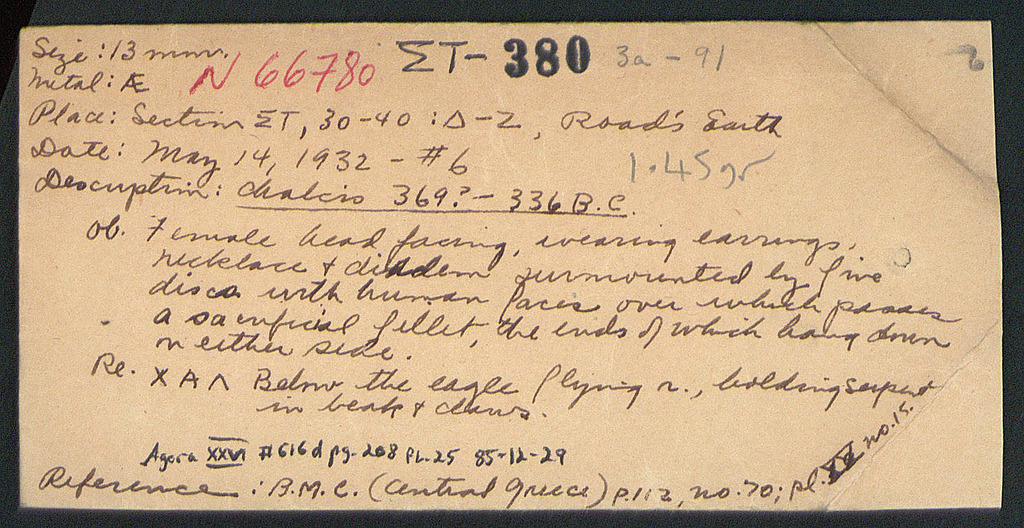 Size: 13 mm. ΣΤ-380 3a-91
Metal: Æ N 66780
Place: Section ΣΤ, 30-40 : Δ-Ζ, Road's Earth
Date: May 14, 1932 - #6 1.45gr
Description: Chalcis 369?-336 B.C.
Ob. Female head facing, wearing earrings,
necklace + diadem surmounted by five
discs with human faces over which passes
a sacrificial fillet, the ends of which hang down
on either side.
Re. ΧΑΛ Below the eagle flying r., holding serpent
in beak + claws.
Agora XXVI #616d pg.208 PL.25 85-12-29
Reference: B.M.C. (Central Greece) p.112, no.70; pl. XX no.15.